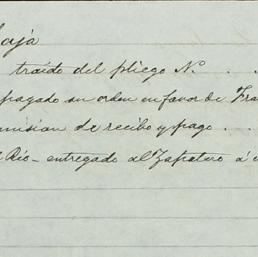 traído del pliego N. . .
pagado su orden en favor de Fra
misión de recibo y pago . .
Rio - entregado al Zapatero á